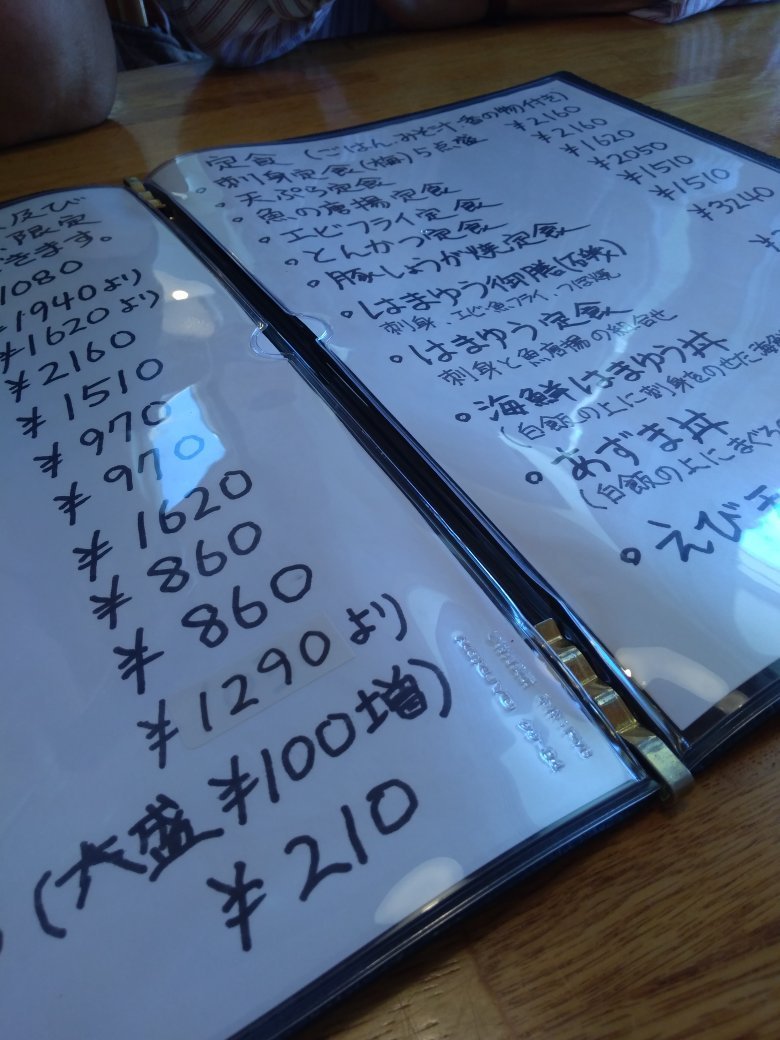 及び
限定
きます。
1080
¥1940より
¥1620より
¥2160
¥1510
¥970
¥970
¥1620
¥860
¥860
¥1290より
(大盛¥100増)
¥210
定食(ごはん・みそ汁・香の物付き)
・刺身定食(大海)5点盛 ¥2160
・天ぷら定食 ¥2160
・魚の唐揚定食 ¥1620
・エビフライ定食 ¥2050
・とんかつ定食 ¥1510
・豚しょうが焼定食 ¥1510
・はまゆう御膳(磯) ¥3240
刺身、エビ・魚フライ、つぼ焼
・はまゆう定食
刺身と魚唐揚の組合せ
・海鮮はまゆう丼
(白飯の上に刺身をのせた海鮮
・あずま丼
(白飯の上にまぐろの
・えび天